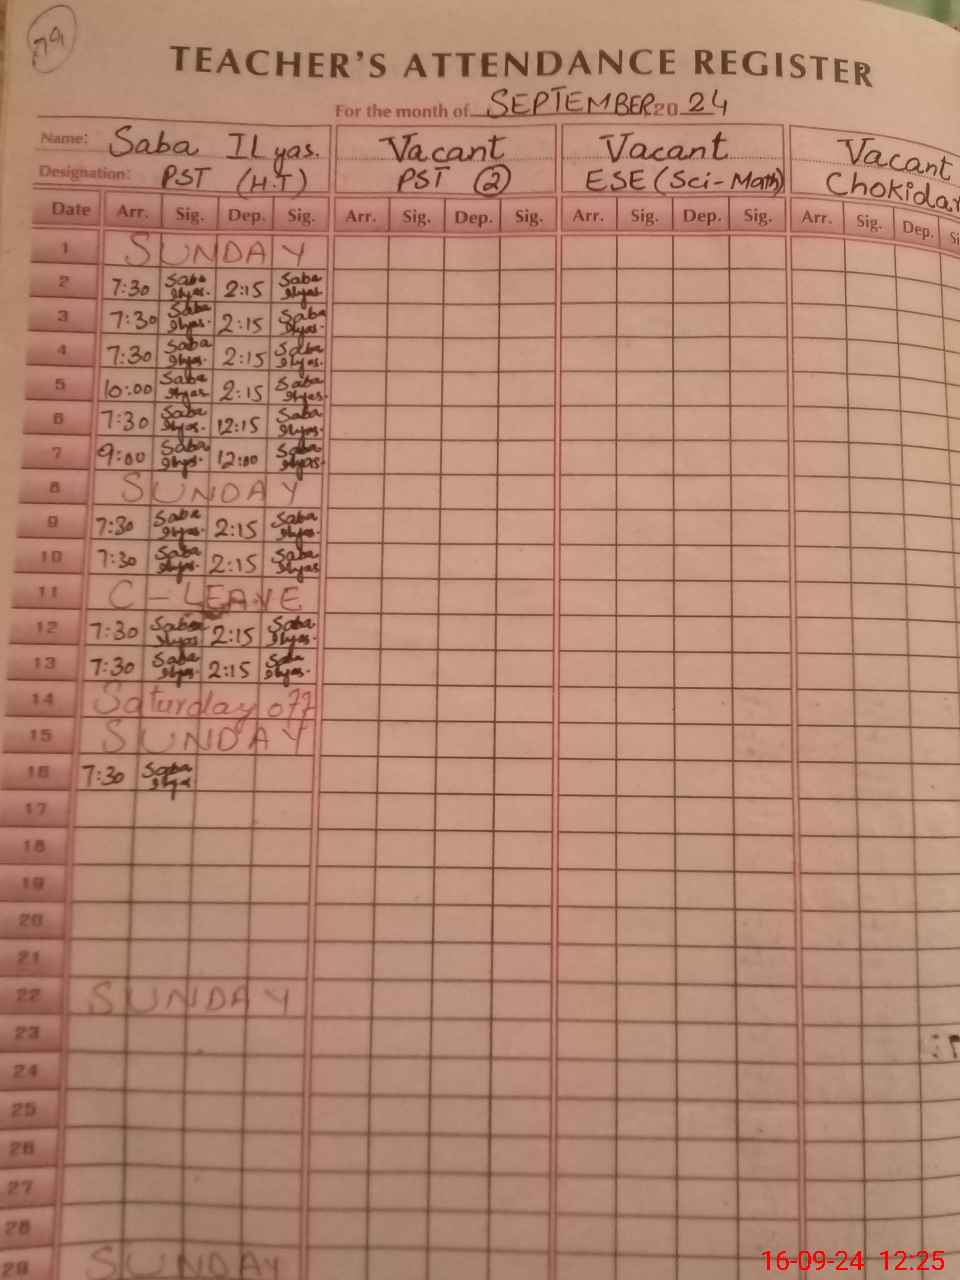 79
TEACHER'S ATTENDANCE REGISTER
For the month of SEPTEMBER 20 24
Name: Saba ILyas. Vacant Vacant Vacant
Designation: PST (H.T) PST (2) ESE (Sci-Math) Chokidar
Date Arr. Sig. Dep. Sig. Arr. Sig. Dep. Sig. Arr. Sig. Dep. Sig. Arr. Sig. Dep. Si
1 SUNDAY
2 7:30 Saba Ilyas. 2:15 Saba Ilyas
3 7:30 Saba Ilyas. 2:15 Saba Ilyas.
4 7:30 Saba Ilyas. 2:15 Saba Ilyas.
5 10:00 Saba Ilyas. 2:15 Saba Ilyas.
6 7:30 Saba Ilyas. 12:15 Saba Ilyas.
7 9:00 Saba Ilyas. 12:00 Saba Ilyas.
8 SUNDAY
9 7:30 Saba Ilyas. 2:15 Saba Ilyas.
10 7:30 Saba Ilyas. 2:15 Saba Ilyas
11 C-LEAVE
12 7:30 Saba Ilyas 2:15 Saba Ilyas.
13 7:30 Saba Ilyas. 2:15 Saba Ilyas.
14 Saturday off
15 SUNDAY
16 7:30 Saba Ilyas
17
18
19
20
21
22 SUNDAY
23
24
25
26
27
28
29 SUNDAY
16-09-24 12:25